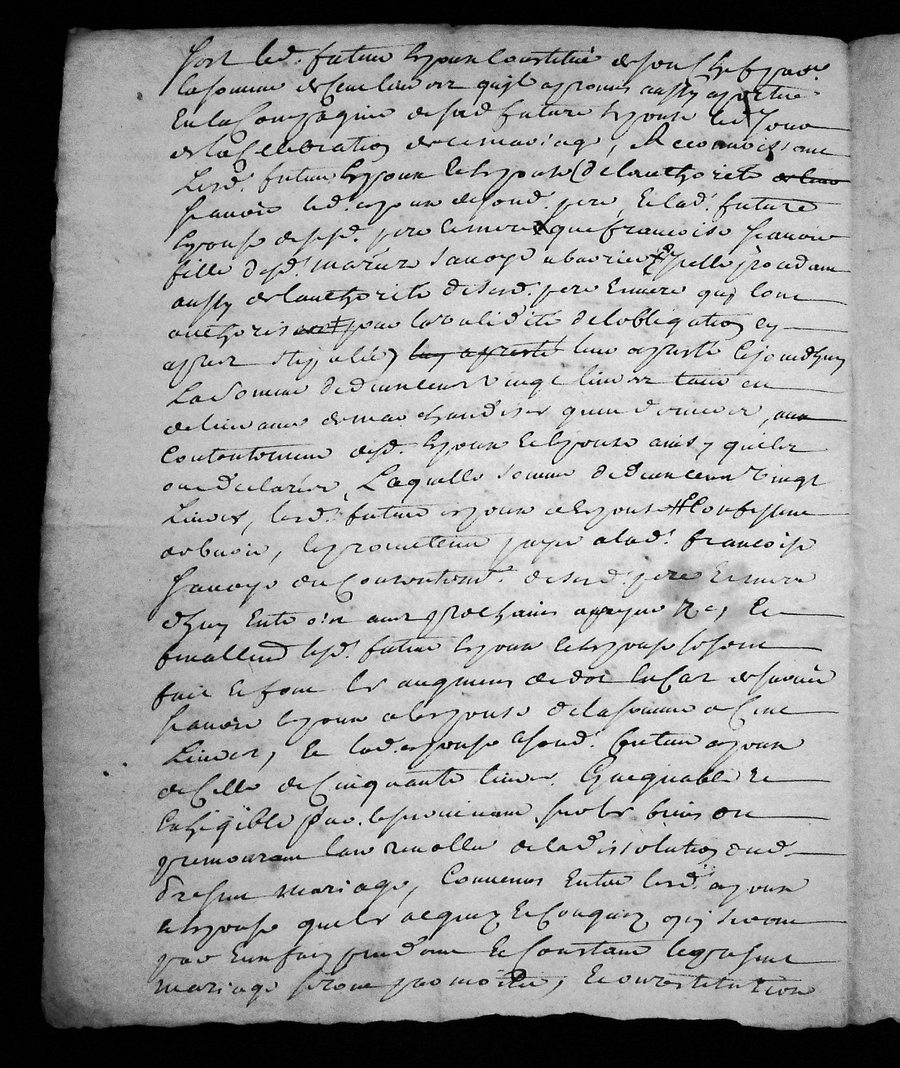 sort led. futur Espoux Constitué de son chef pad.
la somme de Cent livres quil a promis aussy aportter
En la Compagnie de sad future Espouse led Jour
de la Celebration de ce mariage, Reconnoissant
Lesd. futurs Espoux et Espouse (de lauthorité
scavoir led. espoux de sond. pere, et lad. future
Espouse de sesd. pere et mere que francoise
fille desd. mariés
aussy de lauthorité de sesd. pere et mere quy lont
authorisé pour la validité de lobligation cy
apres stipullée) leur a presté cejourdhuy
La Somme de deux cents vingt livres tant en
deliurance de marchandises quen deniers, au
Contentement desd. Espoux et Espouse ainsy quils
ont declarés, Laquelle somme de deux cents vingt
Livres, lesd. futurs espoux et Espouse Confessent
debvoir, et promettent payer a lad. francoise
du Consentemt. de sesd. pere et mere
dhuy En trois ans prochains a peyne &c, Et
finallemt lesd. futurs Espoux et Espouse se sont
fait et font les augments de dot En Cas de survie
scavoir Espoux a lespouse de la somme de Cent
Livres, Et lad. espouse a sond. futur espoux
de Celle de Cinquante livres. Gaignable Et
Exigible par le survivant sur les biens du
premourant lors de la dissolution dud.
present mariage, Convenus Entre lesd. espoux
et Espouse que les acquis et Conquis quy seront
par Eux faits pendant et Constant le present
mariage seront par moitié, Et en restitution